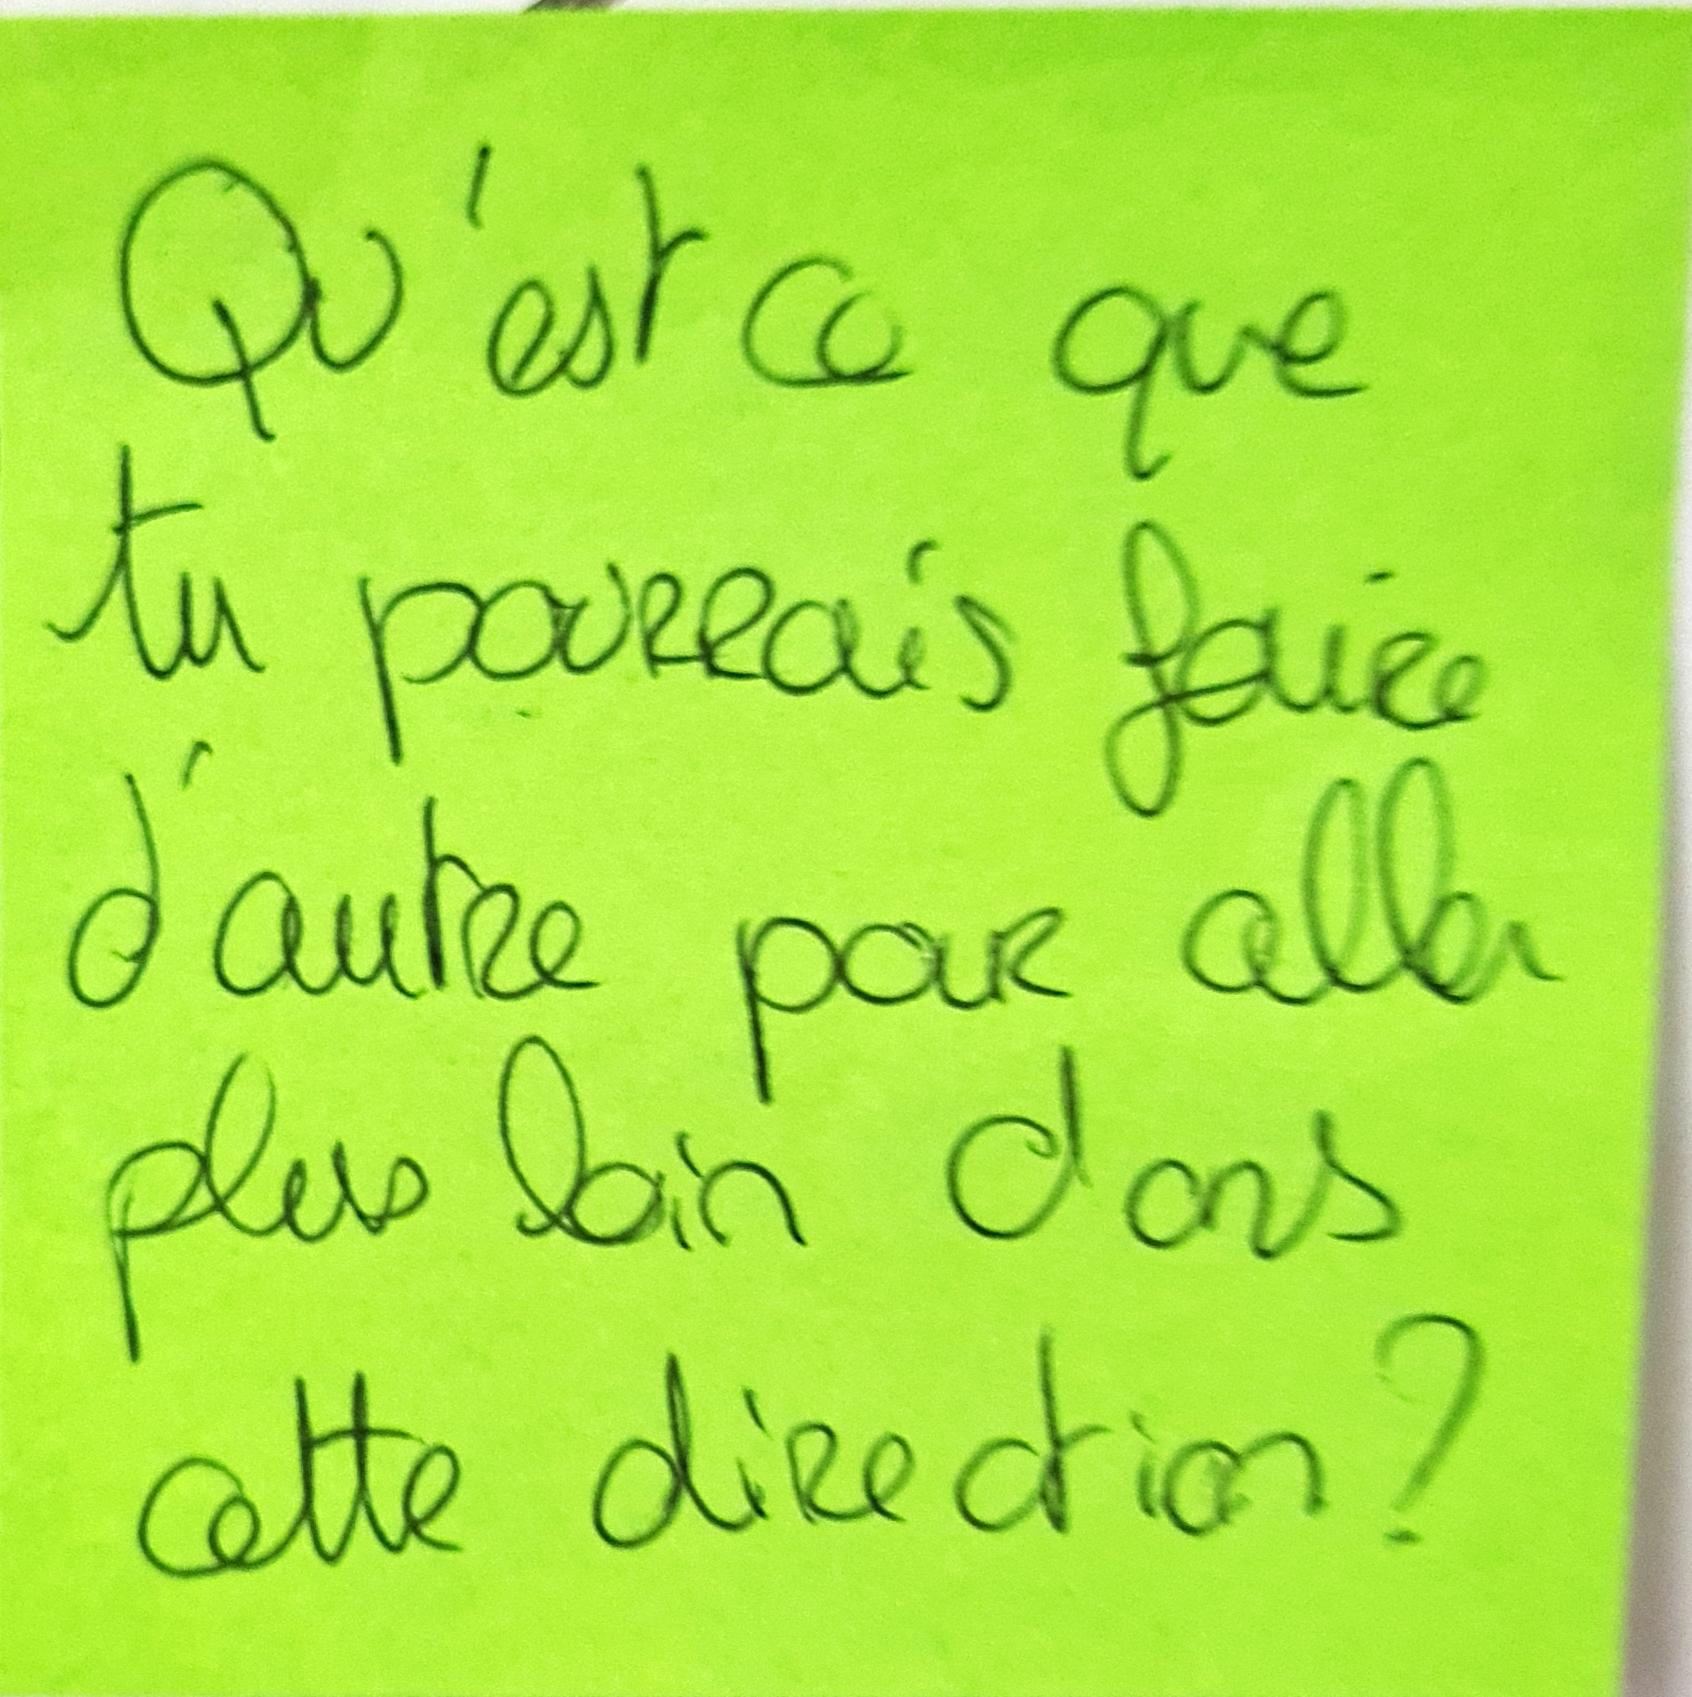 Qu'est ce que
tu pourrais faire
d'autre pour aller
plus loin dans
cette direction?